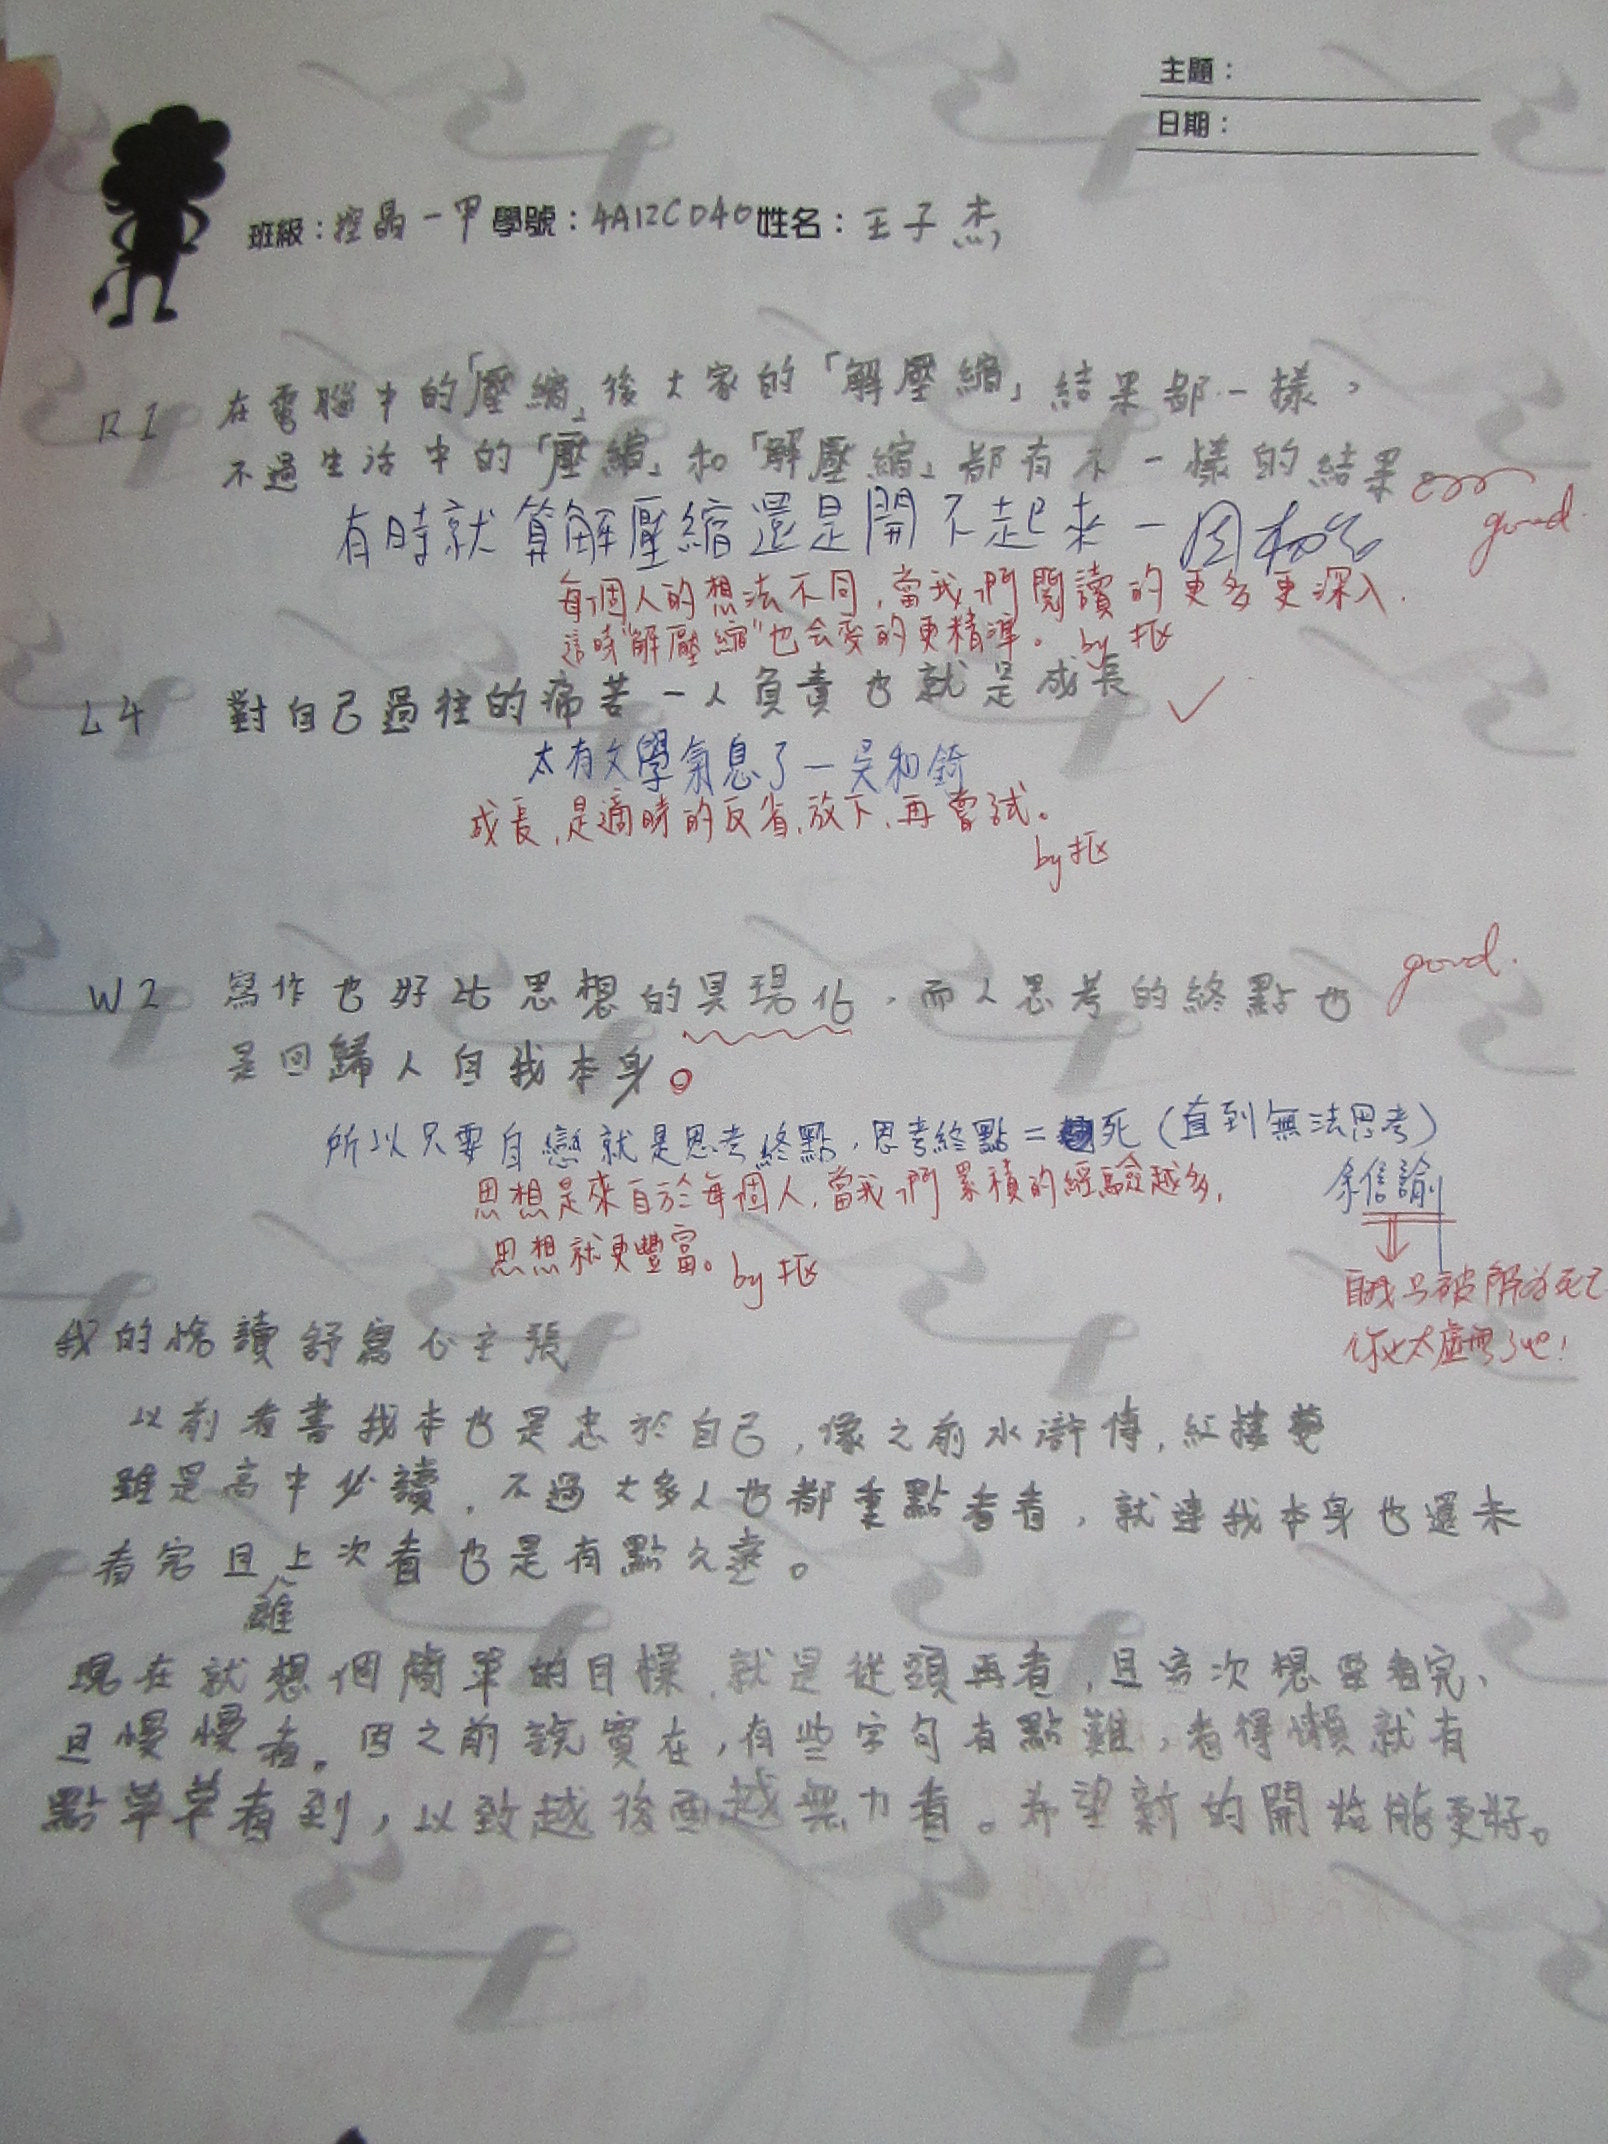 主題：
日期：
班級：控晶一甲 學號：4A12C040 姓名：王子杰
R1 在電腦中的「壓縮」後大家的「解壓縮」結果都一樣，
不過生活中的「壓縮」和「解壓縮」都有不一樣的結果
good.
有時就算解壓縮還是開不起來－周
每個人的想法不同，當我們閱讀的更多更深入，
這時"解壓縮"也会变的更精準。by
L4 對自己過往的痛苦一人負責也就是成長
太有文學氣息了－吳和錡
成長，是適時的反省、放下、再嘗試。
by
W2 寫作也好比思想的具現化，而人思考的終點也
good.
是回歸人自我本身。
所以只要自戀就是思考終點，思考終點＝死（直到無法思考）
余信諭
思想是來自於每個人，當我們累積的經驗越多，
思想就更豐富。by
自我只被解為死亡
你也太虛無了吧！
我的悅讀舒寫心主張
以前看書我本也是忠於自己，像之前水滸傳，紅摟夢
雖是高中必讀，不過大多人也都重點看看，就連我本身也還未
看完且上次看也是有點久遠。
離
現在就想個簡單的目標，就是從頭再看，且這次想要看完、
且慢慢看。因之前說實在，有些字句有點難，看得懶就有
點草草看到，以致越後面越無力看。希望新的開始能更好。